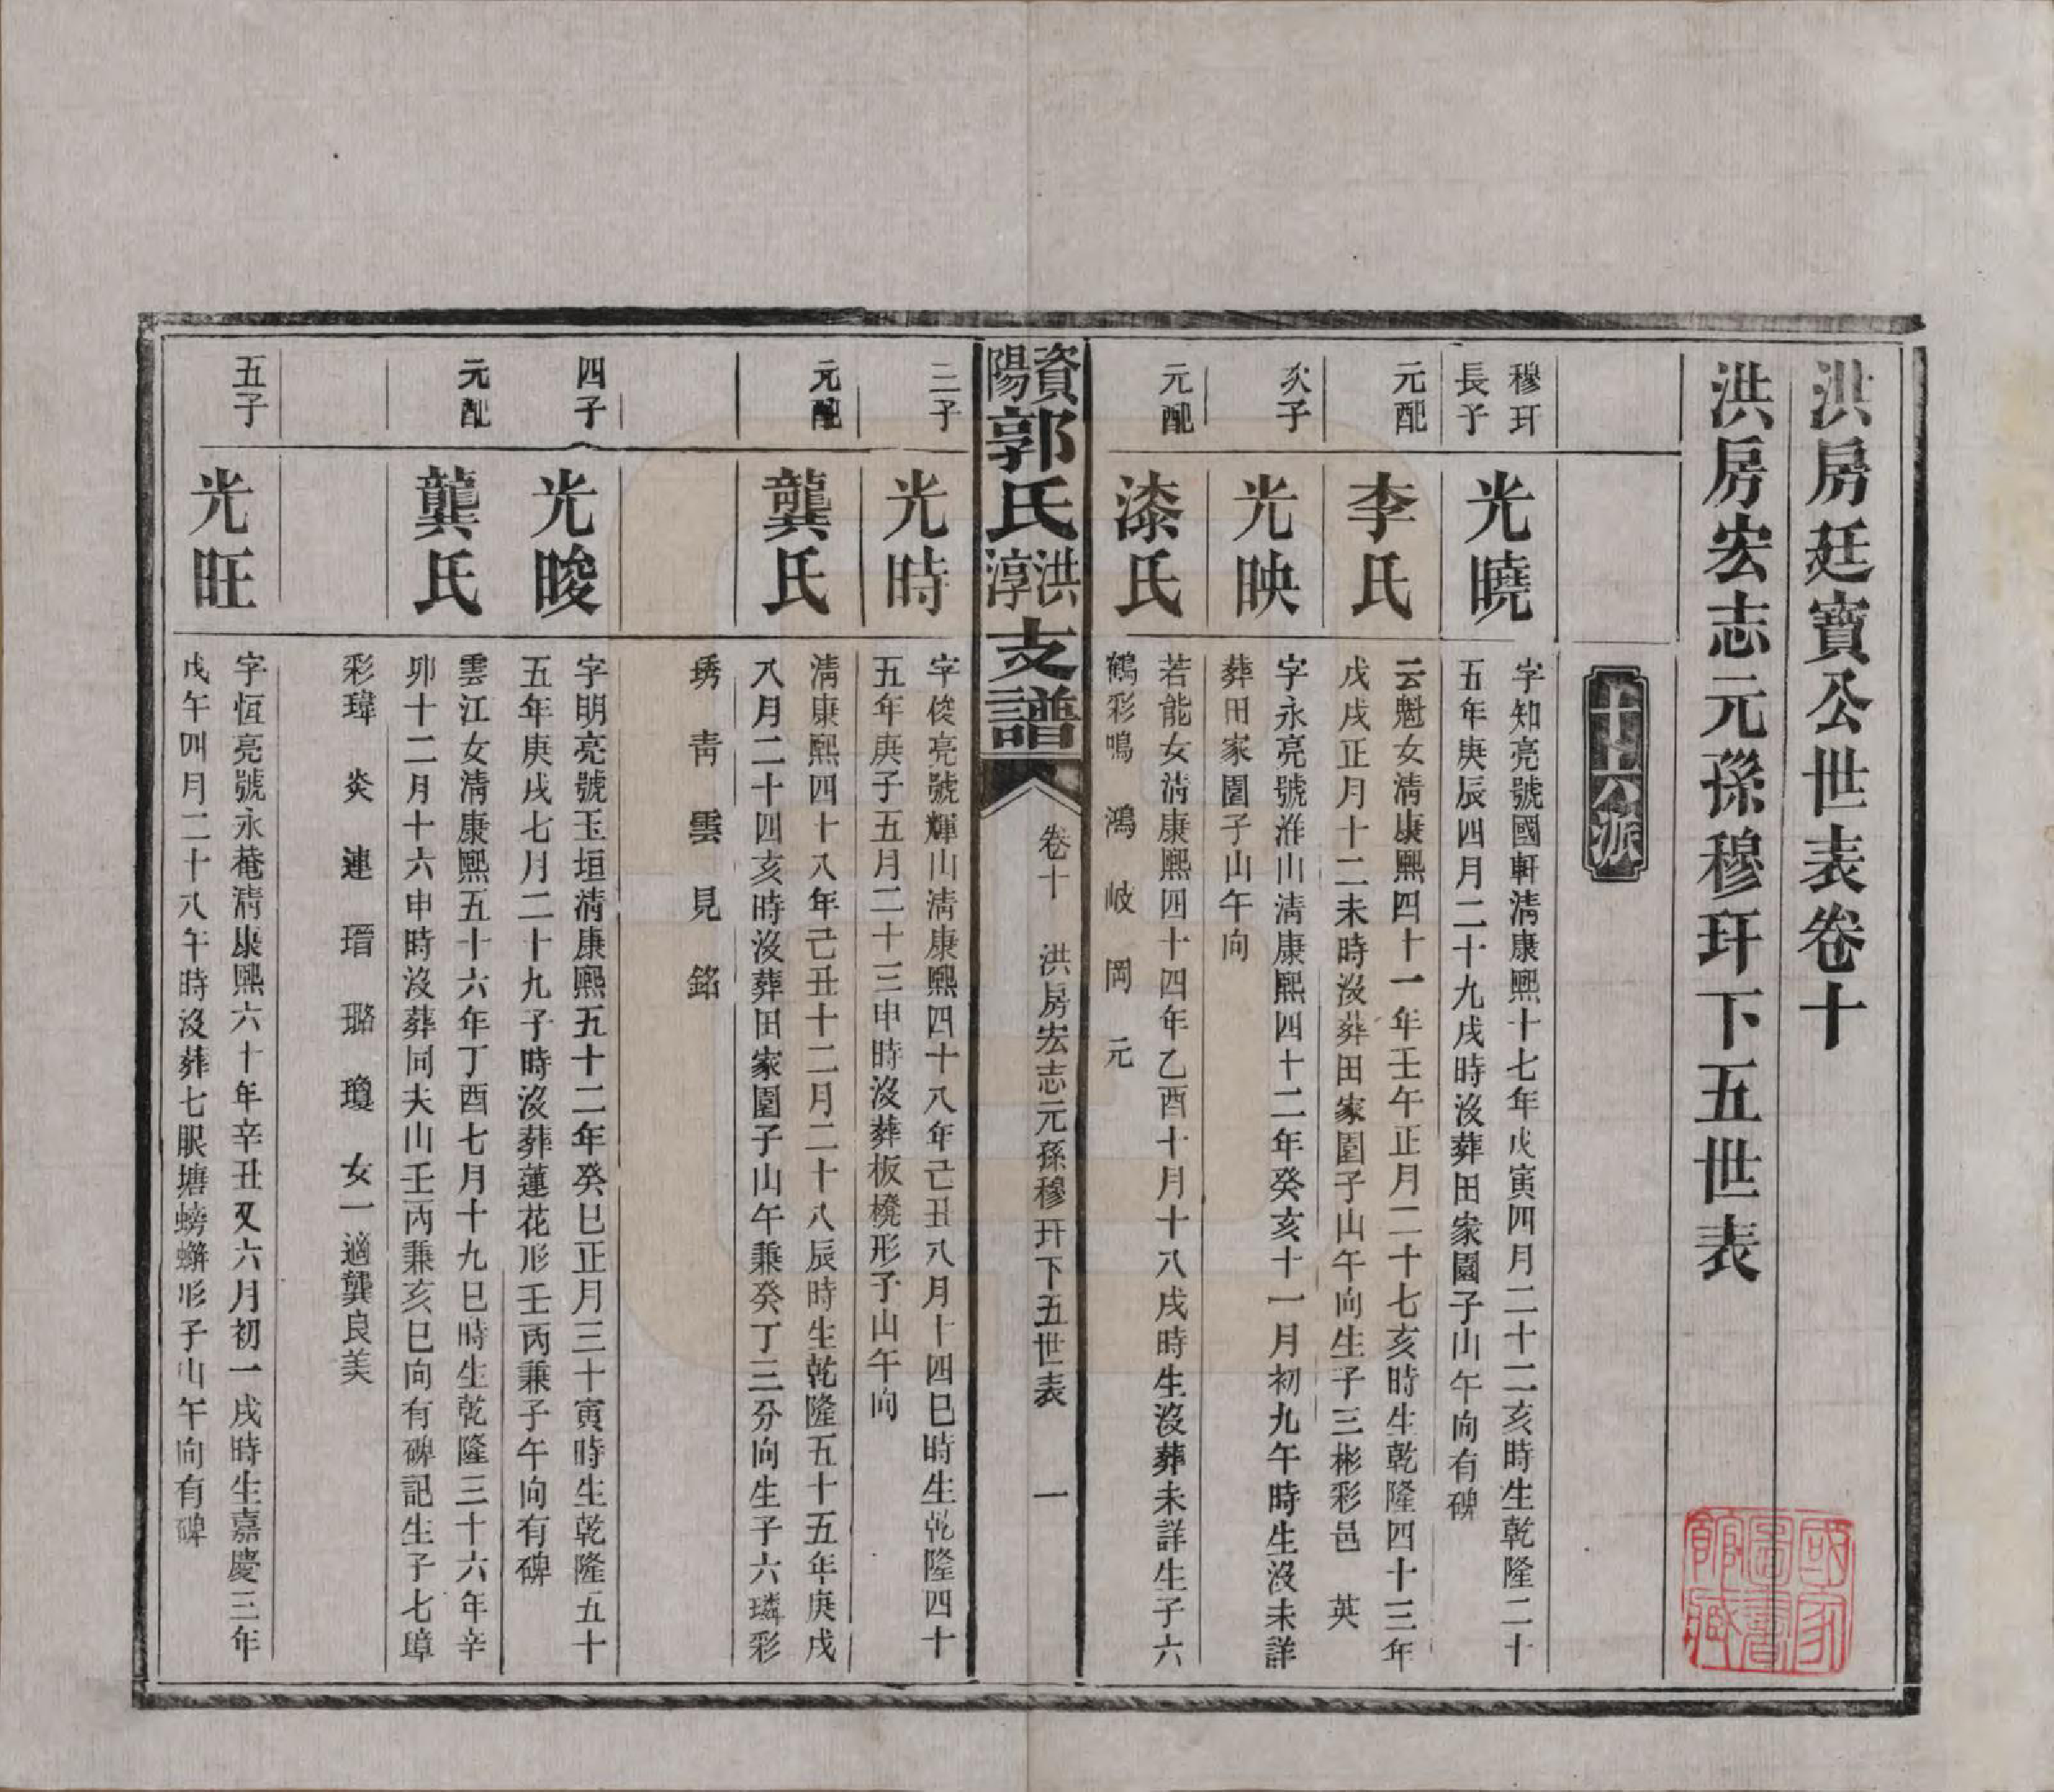 洪房廷寶公世表卷十
洪房宏志元孫穆玕下五世表
十六派
穆玕
長子
光曉
字知亮號國軒清康熙十七年戊寅四月二十二亥時生乾隆二十
五年庚辰四月二十九戌時沒葬田家園子山午向有碑
元配
李氏
云魁女清康熙四十一年壬午正月二十七亥時生乾隆四十三年
戊戌正月十二未時沒葬田家園子山午向生子三彬彩邑 英
次子
光映
字永亮號淮山清康熙四十二年癸亥十一月初九午時生沒未詳
葬田家園子山午向
元配
漆氏
若能女清康熙四十四年乙酉十月十八戌時生沒葬未詳生子六
鶴彩鳴 鴻 岐 岡 元
資陽郭氏洪淳支譜
卷十 洪房宏志元孫穆玕下五世表 一
三子
光時
字俊亮號輝山清康熙四十八年己丑八月十四巳時生乾隆四十
五年庚子五月二十三申時沒葬板櫈形子山午向
元配
龔氏
清康熙四十八年己丑十二月二十八辰時生乾隆五十五年庚戌
八月二十四亥時沒葬田家園子山午兼癸丁三分向生子六璘彩
琇 青 雲 見 銘
四子
光晙
字明亮號玉垣清康熙五十二年癸巳正月三十寅時生乾隆五十
五年庚戌七月二十九子時沒葬蓮花形壬丙兼子午向有碑
元配
龔氏
雲江女清康熙五十六年丁酉七月十九巳時生乾隆三十六年辛
卯十二月十六申時沒葬同夫山壬丙兼亥巳向有碑記生子七璋
彩瑋 炎 連 瑨 璐 瓊 女一適龔良美
五子
光旺
字恒亮號永菴清康熙六十年辛丑又六月初一戌時生嘉慶三年
戊午四月二十八午時沒葬七眼塘螃蠏形子山午向有碑
國家圖書館藏